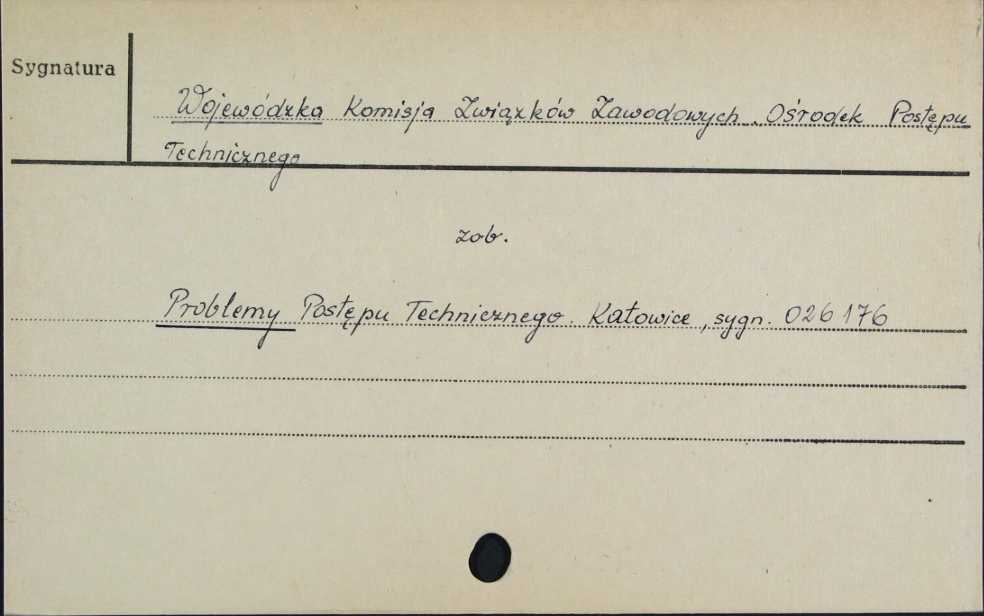 Sygnatura
Wojewódzka Komisja Związków Zawodowych. Ośrodek Postępu
Technicznego
zob.
Problemy Postępu Technicznego. Katowice, sygn. 026176